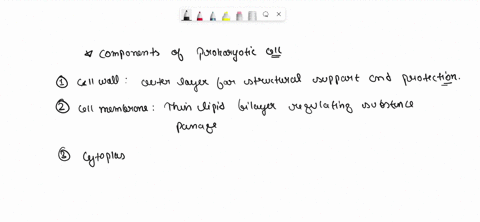 * Components of Prokaryotic cell
① Cell wall : outer layer for structural support and protection.
② Cell membrane : Thin lipid bilayer regulating substance
panage
③ Cytoplas